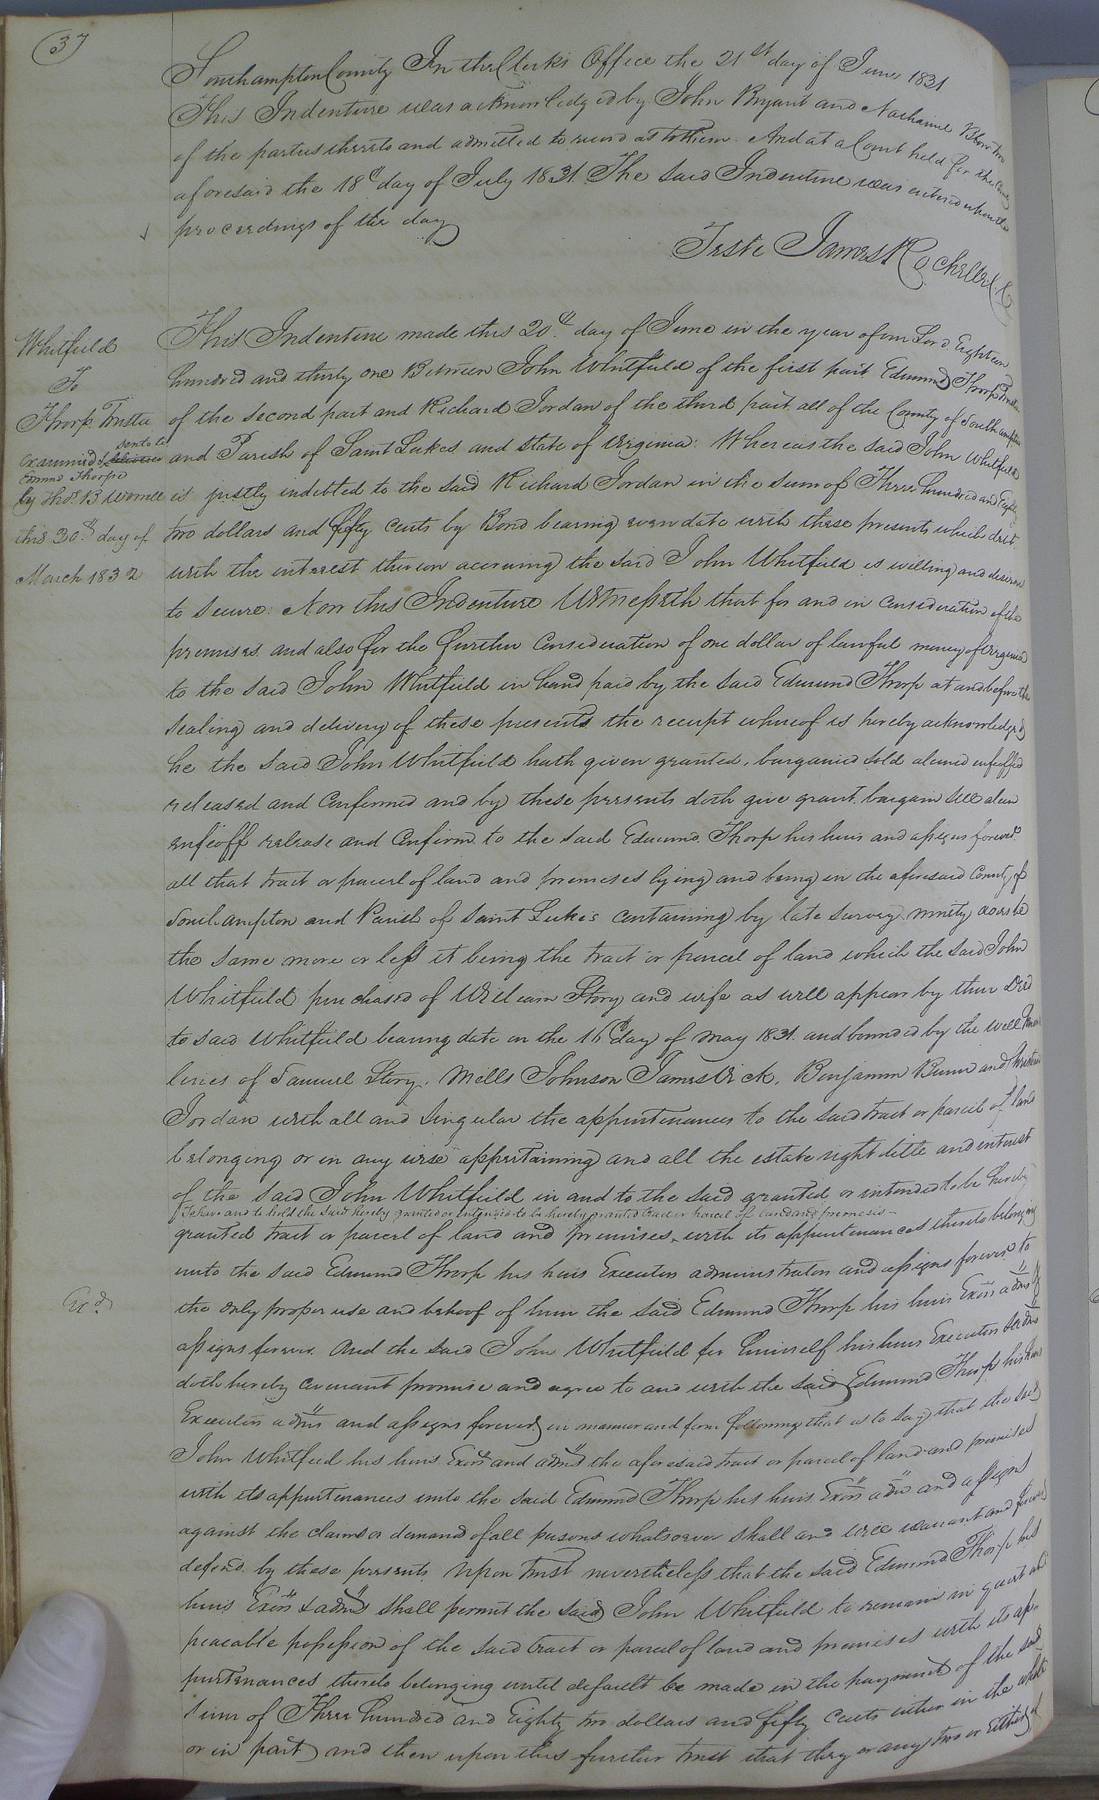 37
Southampton County In the Clerks Office the 21st day of June 1831
This Indenture was acknowledged by John Bryant and Nathaniel two
of the parties thereto and admitted to record as to them. And at a Court held for the County
aforesaid the 18th day of July 1831. The said Indenture was entered upon the
proceedings of the day
Teste James Rochelle C.C
Whitfield
To
Thorp Trustee
examined & delivered sent to
Edmd Thorpe
by Thos. B Worrell
this 30th day of
March 1832
This Indenture made this 20th day of June in the year of our Lord Eighteen
hundred and thirty one Between John Whitfield of the first part Edmund Thorp Trustee
of the second part and Richard Jordan of the third part all of the County of Southampton
and Parish of Saint Lukes and state of Virginia: Whereas the said John Whitfield
is justly indebted to the said Richard Jordan in the sum of Three hundred and Eighty
two dollars and fifty cents by Bond bearing even date with these presents which debt
with the interest thereon accruing the said John Whitfield is willing and desirous
to secure: Now this Indenture Witnesseth that for and in consideration of the
premises and also for the further consideration of one dollar of lawful money of Virginia
to the said John Whitfield in hand paid by the said Edmund Thorp at and before the
sealing and delivery of these presents the receipt whereof is hereby acknowledged
he the said John Whitfield hath given granted, bargained sold aliened enfeoffed
released and confirmed and by these presents doth give grant bargain sell alien
enfeoff release and confirm to the said Edmund Thorp his heirs and assigns forever
all that tract or parcel of land and premises lying and being in the aforesaid County of
Southampton and Parish of Saint Luke's containing by late survey ninety acres be
the same more or less it being the tract or parcel of land which the said John
Whitfield purchased of William Story and wife as will appear by their Deed
to said Whitfield bearing date on the 16th day of May 1831 and bounded by the well known
lines of Samuel Story, Mills Johnson James Vick, Benjamin Bunn and
Jordan with all and singular the appurtenances to the said tract or parcel of land
belonging or in any wise appertaining and all the estate right title and interest
of the said John Whitfield in and to the said granted or intended to be hereby
To have and to hold the said hereby granted or intended to be hereby granted tract or parcel of land and premises
granted tract or parcel of land and premises, with its appurtenances thereto belonging
unto the said Edmund Thorp his heirs Executors administrators and assigns forever to
the only proper use and behoof of him the said Edmund Thorp his heirs Exors adms &
assigns forever. And the said John Whitfield for himself his heirs Executors & adms
doth hereby covenant promise and agree to and with the said Edmund Thorp his heirs
Executors adms and assigns forever in manner and form following that is to say that the said
John Whitfield his heirs Exors and adms the aforesaid tract or parcel of land and premises
with its appurtenances unto the said Edmund Thorp his heirs Exors adms and assigns
against the claims or demand of all persons whatsoever shall and will warrant and forever
defend by these presents Upon trust nevertheless that the said Edmund Thorp his
heirs Exors & adms shall permit the said John Whitfield to remain in quiet and
peacable possession of the said tract or parcel of land and premises with its ap-
purtenances thereto belonging until default be made in the payment of the said
sum of Three hundred and Eighty two dollars and fifty cents either in the whole
or in part and then upon this further trust that they or any two or either of